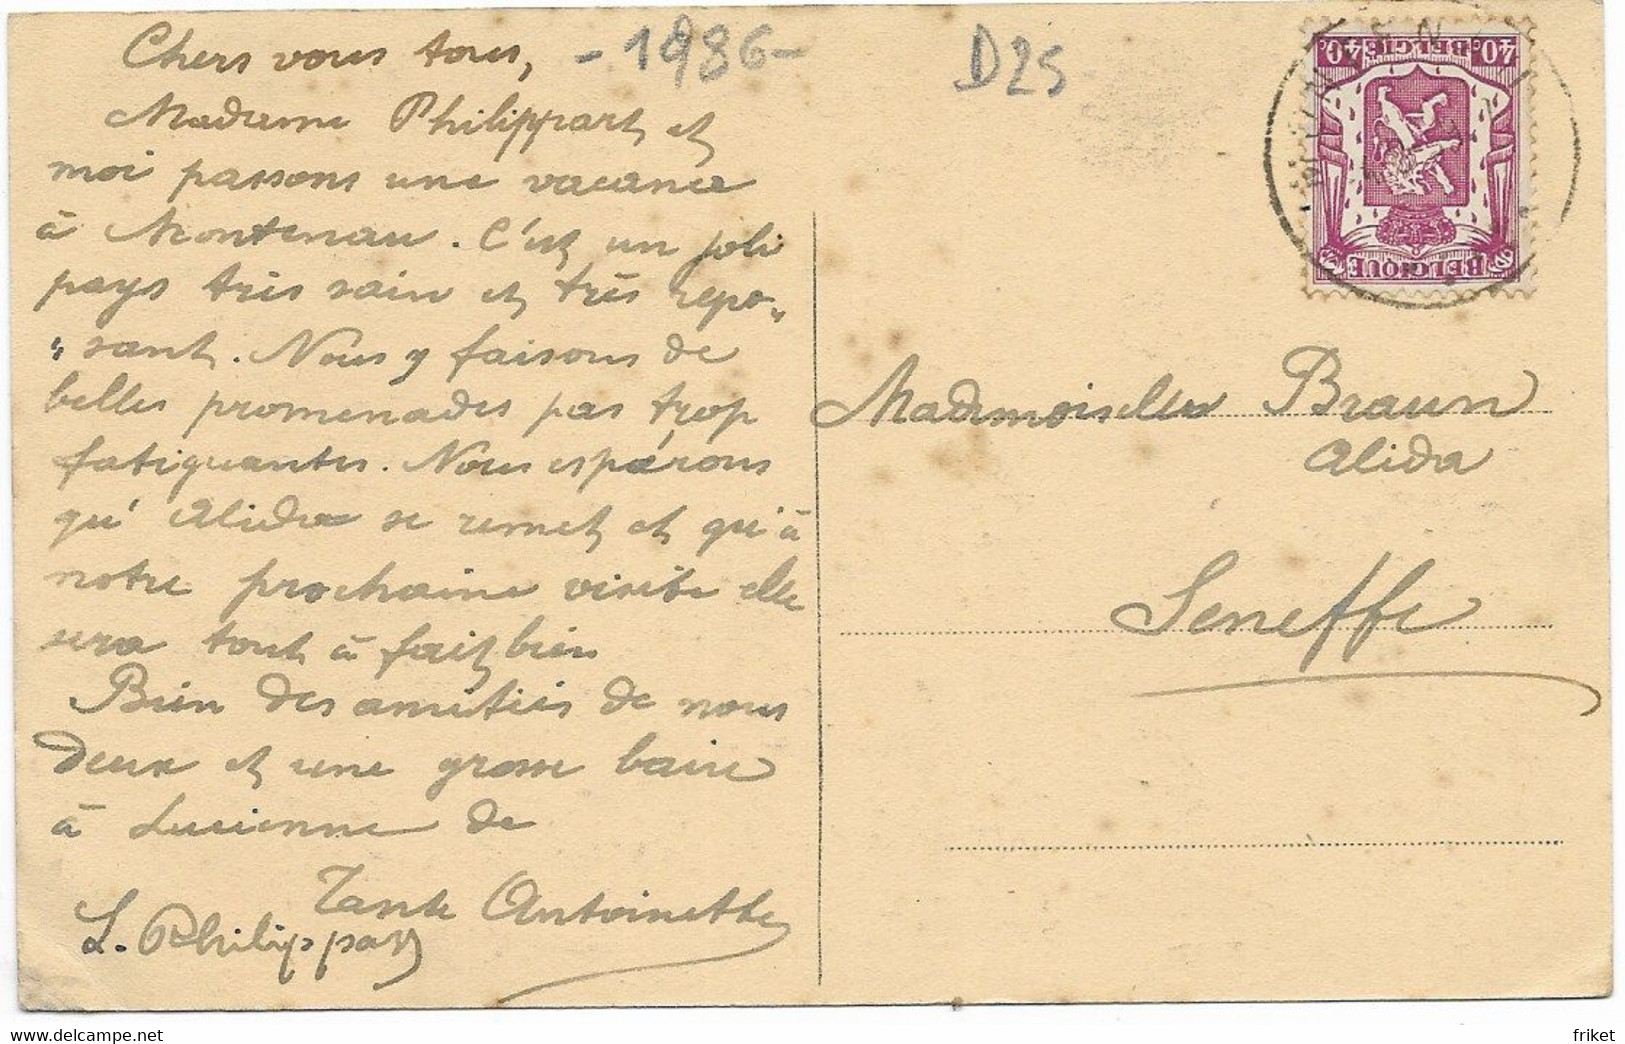 Chers vous tous, - 1986 -
D25
Madame Philippart et
moi passons une vacance
à Montenau. C'est un joli
pays très sain et très repo-
"sant. Nous y faisons de
belles promenades pas trop
fatiguantes. Nous espérons
qu' Alida se remet et qu'à
notre prochaine visite elle
sera tout à fait bien
Bien des amitiés de nous
deux et une grosse baise
à Lucienne de
Tante Antoinette
L. Philippart
BELGIË
40c 40c
BELGIQUE
Mademoiselle Braun
Alida
Seneffe
friket